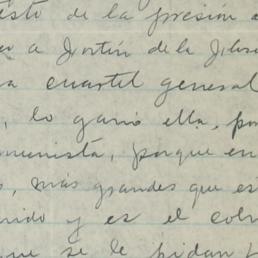 esto de la presión
a Fortín de la
a cuartel general
, lo ganó ella, por
munista, porque en
, más grandes que es
nido y es el colm
que se le pidan